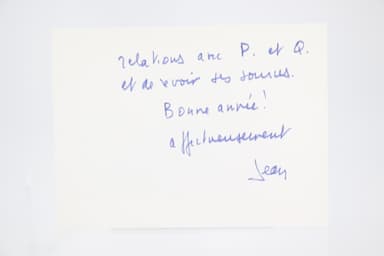 relations avec P. et Q.
et de voir ses sources.
Bonne année!
affectueusement
Jean